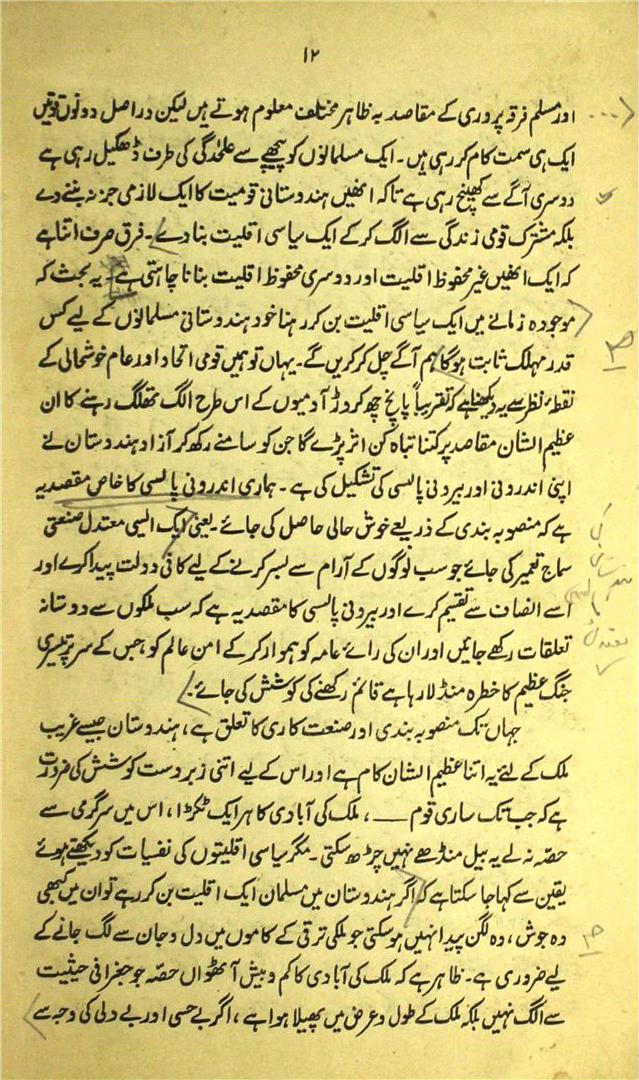 ۱۲
اور مسلم فرقہ پروری کے مقاصد بہ ظاہر مختلف معلوم ہوتے ہیں لیکن دراصل دونوں قوتیں
ایک ہی سمت کام کر رہی ہیں۔ ایک مسلمانوں کو پیچھے سے علیحدگی کی طرف ڈھکیل رہی ہے
دوسری آگے سے کھینچ رہی ہے تاکہ انھیں ہندوستانی قومیت کا ایک لازمی جز نہ بننے دے
بلکہ مشترک قومی زندگی سے الگ کر کے ایک سیاسی اقلیت بنا دے۔ فرق صرف اتنا ہے
کہ ایک انھیں غیر محفوظ اقلیت اور دوسری محفوظ اقلیت بنانا چاہتی ہے۔ یہ بحث کہ
موجودہ زمانے میں ایک سیاسی اقلیت بن کر رہنا خود ہندوستانی مسلمانوں کے لیے کس
قدر مہلک ثابت ہوگا ہم آگے چل کر کریں گے۔ یہاں تو ہمیں قومی اتحاد اور عام خوشحالی کے
نقطۂ نظر سے یہ دیکھنا ہے کہ تقریباً پانچ چھ کروڑ آدمیوں کے اس طرح الگ تھلگ رہنے کا ان
عظیم الشان مقاصد پر کتنا تباہ کن اثر پڑے گا جن کو سامنے رکھ کر آزاد ہندوستان نے
اپنی اندرونی اور بیرونی پالسی کی تشکیل کی ہے۔ ہماری اندرونی پالسی کا خاص مقصد یہ
ہے کہ منصوبہ بندی کے ذریعے خوش حالی حاصل کی جائے۔ یعنی ایک ایسی معتدل صنعتی
سماج تعمیر کی جائے جو سب لوگوں کے آرام سے بسر کرنے کے لیے کافی دولت پیدا کرے اور
اسے انصاف سے تقسیم کرے اور بیرونی پالسی کا مقصد یہ ہے کہ سب ملکوں سے دوستانہ
تعلقات رکھے جائیں اور ان کی رائے عامہ کو ہموار کر کے امن عالم کو جس کے سر پر تیسری
جنگ عظیم کا خطرہ منڈلا رہا ہے قائم رکھنے کی کوشش کی جائے۔
جہاں تک منصوبہ بندی اور صنعت کاری کا تعلق ہے، ہندوستان جیسے غریب
ملک کے لئے یہ اتنا عظیم الشان کام ہے اور اس کے لیے اتنی زبردست کوشش کی ضرورت
ہے کہ جب تک ساری قوم ــــ ، ملک کی آبادی کا ہر ایک ٹکڑا، اس میں سرگرمی سے
حصّہ نہ لے یہ بیل منڈھے نہیں چڑھ سکتی۔ مگر سیاسی اقلیتوں کی نفسیات کو دیکھتے ہوئے
یقین سے کہا جا سکتا ہے کہ اگر ہندوستان میں مسلمان ایک اقلیت بن کر رہے تو ان میں کبھی
وہ جوش، وہ لگن پیدا نہیں ہوسکتی جو ملکی ترقی کے کاموں میں دل و جان سے لگ جانے کے
لیے ضروری ہے۔ ظاہر ہے کہ ملک کی آبادی کا کم و بیش آٹھواں حصّہ جو جغرافی حیثیت
سے الگ نہیں بلکہ ملک کے طول و عرض میں پھیلا ہوا ہے، اگر بے حسی اور بے دلی کی وجہ سے